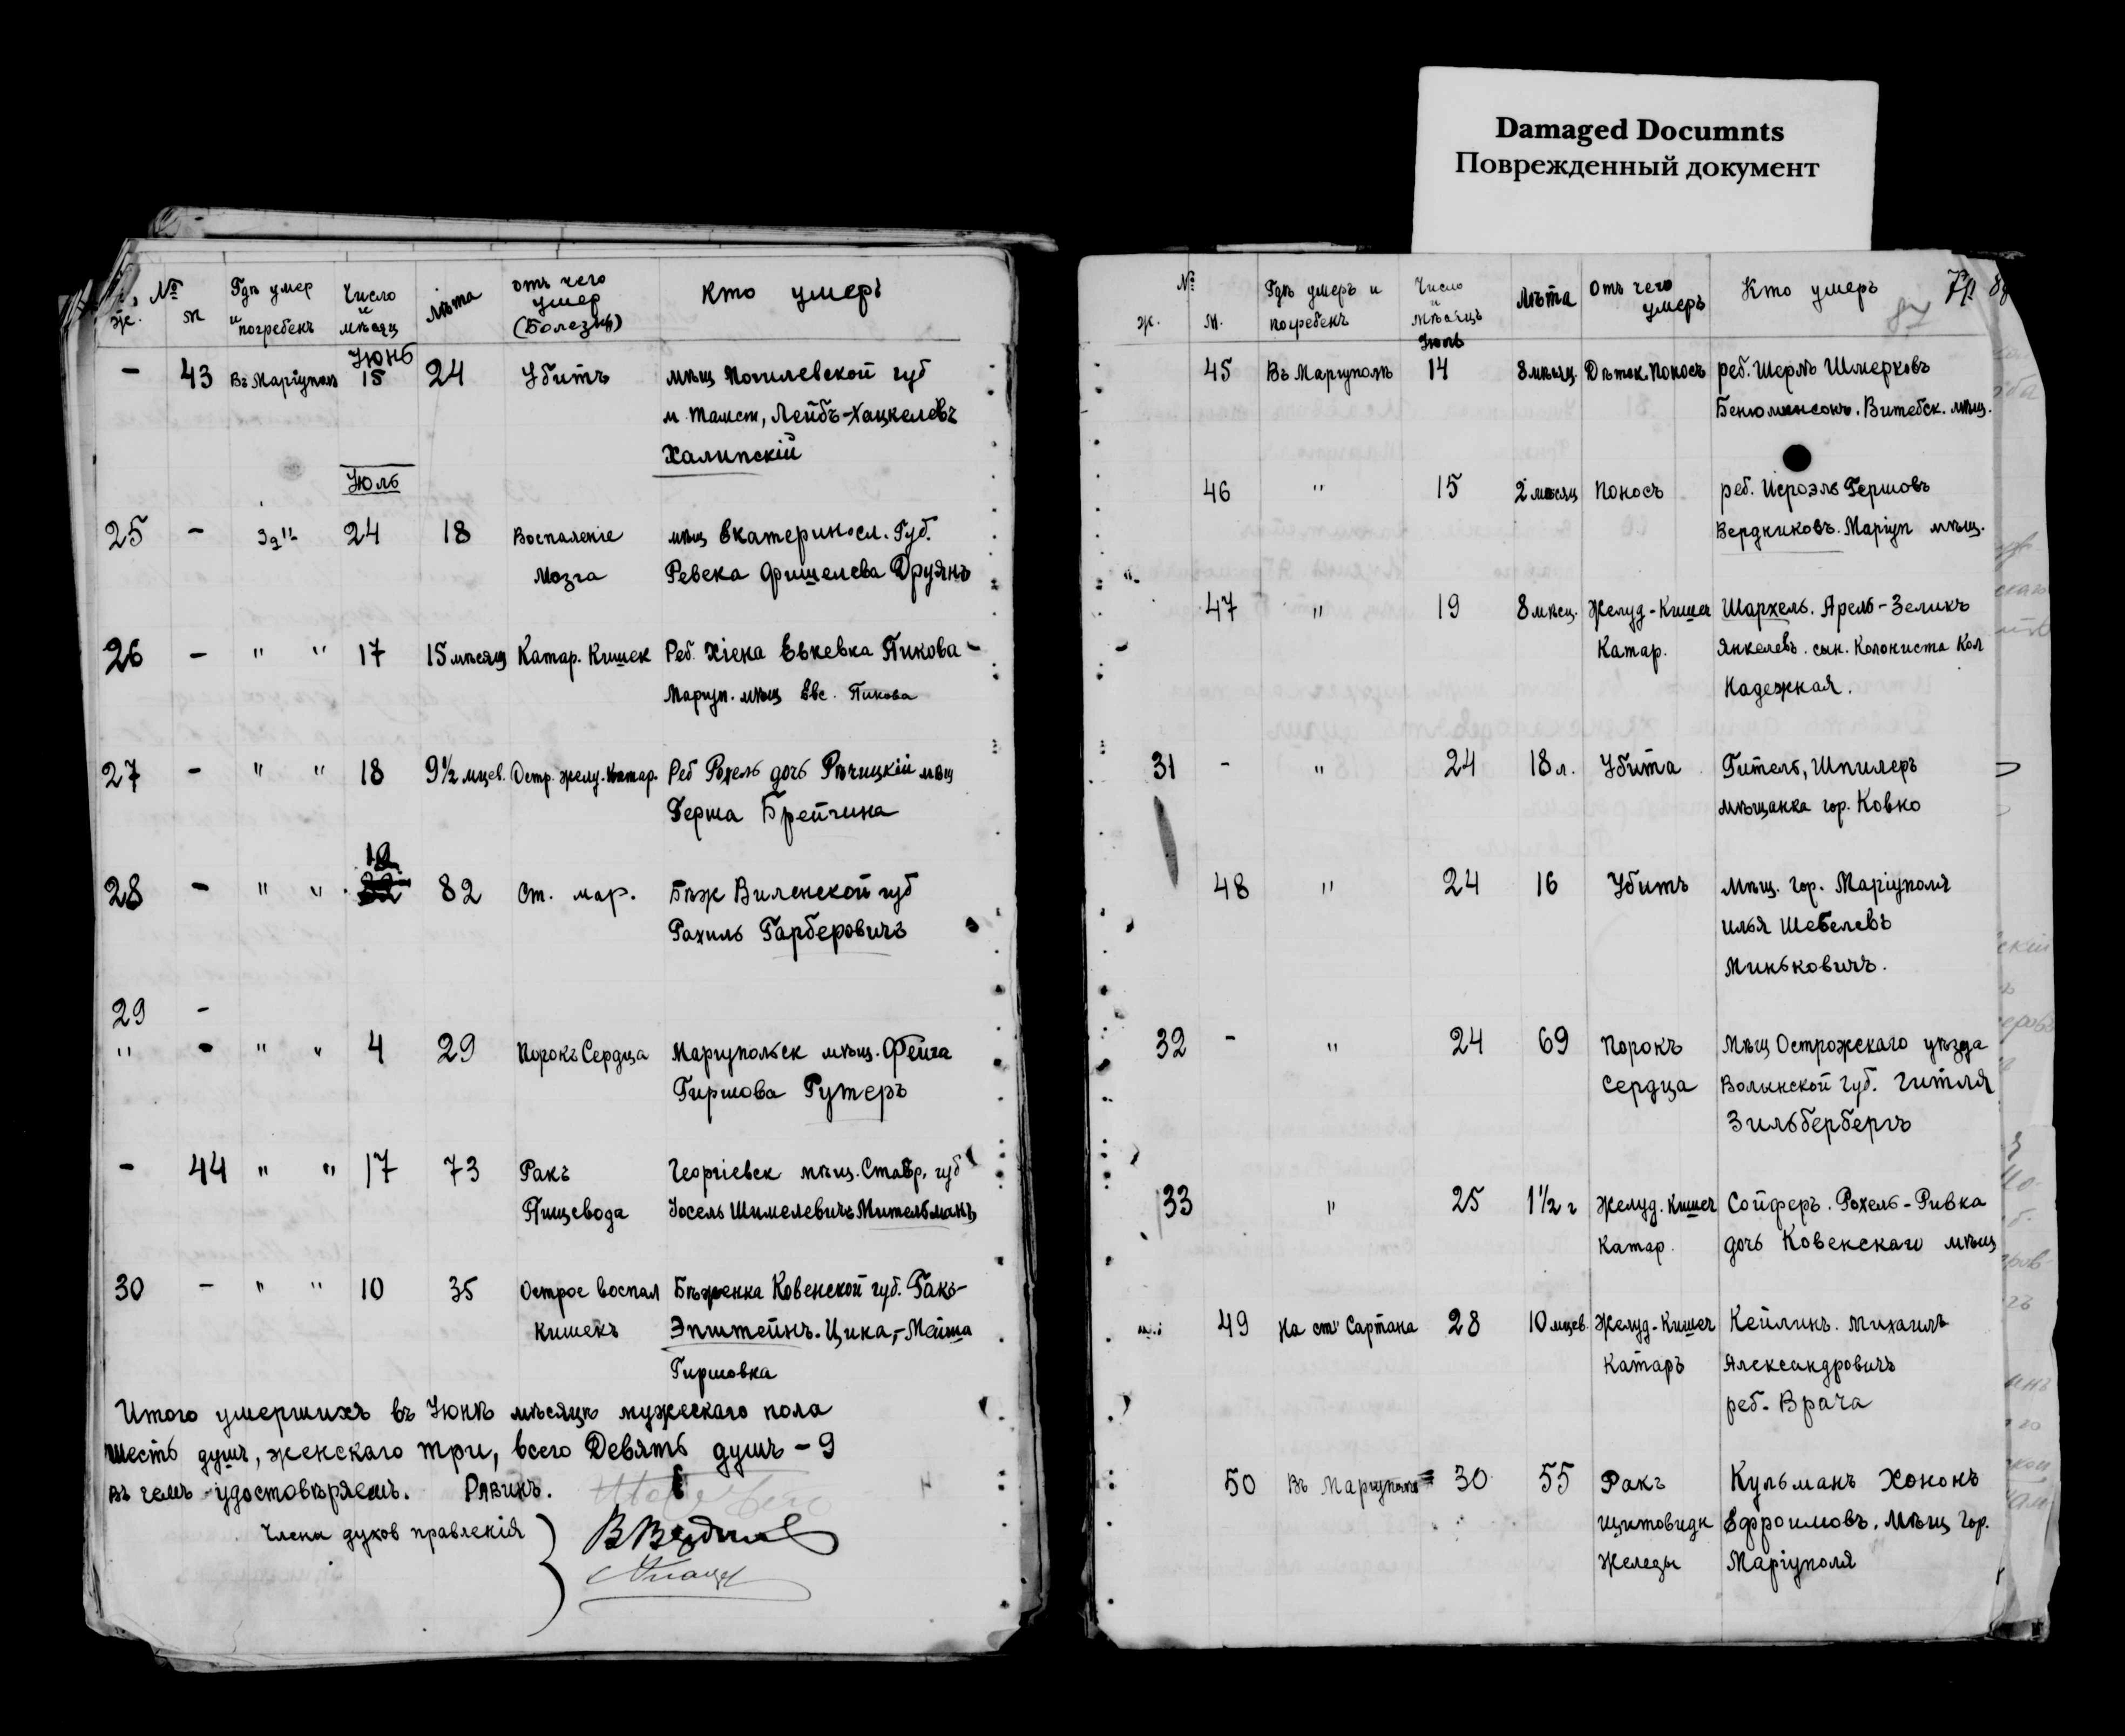 Damaged Documnts
Поврежденный документ
№
ж. м
Гдѣ умер и погребенъ
Число и мѣсяц
Лѣта
отъ чего умер (Болезнь)
Кто умеръ
Июнь
- 43 Въ Маріуполѣ 15 24 Убитъ мѣщ Могилевской губ
Лейбъ-Хацкелевъ
Халипскій
Июль
25 - 24 18 Воспаленіе мѣщ Екатериносл. Губ.
Мозга Ревека Фишелева Друянъ
26 - " " 17 15 мѣсяц Катар. Кишек Реб. Пикова -
Маріуп. мѣщ Евс. Пикова
27 - " " 18 9½ мцев. Остр. желу. Катар. Реб Рохель дочь Рѣчицкій мѣщ
Герша Брейчина
28 - " " 19 82 Ст. мар. Бѣж Виленской губ
Рахиль Гарберовичъ
29 -
" - " " 4 29 Порокъ Сердца Маріупольск мѣщ. Фейга
Гиршова Рутеръ
- 44 " " 17 73 Ракъ Георгіевск мѣщ. Ставр. губ
Пищевода Іосель Шимелевичъ Мительманъ
30 - " " 10 35 Острое воспал Бѣженка Ковенской губ. Гакъ-
кишекъ Эпштейнъ. Цика,-Мейта
Гиршовна
Итого умершихъ въ Июнѣ мѣсяцѣ мужескаго пола
шесть душъ, женскаго три, всего Девять душъ - 9
въ чемъ удостовѣряемъ. Равинъ.
Члены духов правленія
№
ж. м.
Гдѣ умеръ и погребенъ
Число и мѣсяцъ
Июль
Лѣта
Отъ чего умеръ
Кто умеръ
87
45 Въ Маріуполѣ 14 8 мѣсяц. Дѣтск. Поносъ реб. Шерлъ Шмерковъ
Бенюминсонъ. Витебск. мѣщ.
46 " 15 2 мѣсяц Поносъ реб. Исроэль Гершовъ
Бердниковъ. Маріуп мѣщ.
47 " 19 8 мѣсц. Желуд-Кишеч Шархель. Арель-Зеликъ
Катар. Янкелевъ. сын. Колониста Кол
Надежная.
31 - " 24 18 л. Убита Гитель, Шпилеръ
мѣщанка гор. Ковно
48 " 24 16 Убитъ Мѣщ. гор. Маріуполя
илья Шебелевъ
Миньковичъ.
32 - " 24 69 Порокъ Мѣщ Острожскаго уѣзда
сердца Волынской Губ. Гитля
Зильбербергъ
33 " 25 1½ г Желуд. Кишеч Сойферъ. Рохель-Ривка
Катар. дочь Ковенскаго мѣщ
49 На ст. Сартана 28 10 мцев. Желуд-Кишеч Кейлинъ. Михаилъ
Катаръ Александровичъ
реб. Врача
50 Въ Маріуполѣ 30 55 Ракъ Кульманъ Хононъ
щитовидн Ефроимовъ, мѣщ гор.
железы Маріуполя